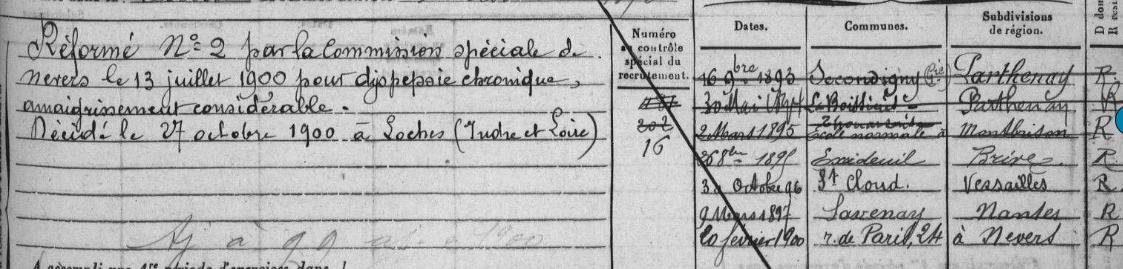 Réformé N° 2 par la Commission spéciale de
Nevers le 13 juillet 1900 pour dyspepsie chronique,
amaigrissement considérable.
Décédé le 27 octobre 1900 à Loches (Indre et Loire)
Numéro
au contrôle
spécial du
recrutement.
202
16
Dates. Communes. Subdivisions
de région.
16 9bre 1893 Secondigny Parthenay R
30 Mai 1894 Parthenay R
2 Mars 1895 École normale à Montbrison R
26 8bre 1895 Exideuil Brive R
3 Octobre 96 St Cloud. Versailles R
9 Mars 1897 Savenay Nantes R
20 février 1900 r. de Paris, 24 à Nevers R